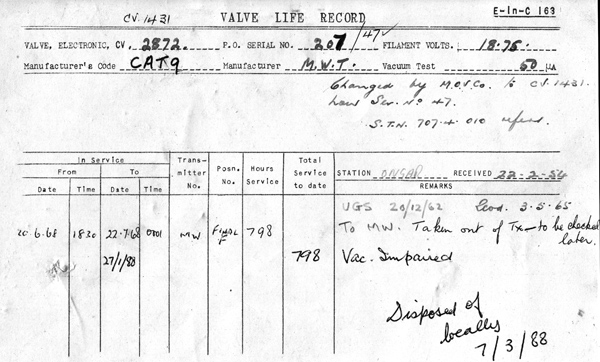 CV.1431 VALVE LIFE RECORD E-In-C 163
VALVE, ELECTRONIC, CV. 2872. P.O. SERIAL NO. 207/47V FILAMENT VOLTS. 18.75.
Manufacturer's Code CAT9 Manufacturer M.W.T. Vacuum Test 60 µA
Changed by M.O.V.Co. to CV.1431.
Ser. No 47.
S.T.N. 707.4.010 refers.
In Service
From To
Date Time Date Time
Trans-mitter No.
Posn. No.
Hours Service
Total Service to date
STATION ONGAR RECEIVED 22-2-54
REMARKS
UGS 20/12/62 Good. 3-5-65
20.6.68 1830 22-7-68 0001 MW FINAL F 798 To MW. Taken out of Tx – to be checked later.
27/1/88 798 Vac. Impaired
Disposed of
locally
7/3/88